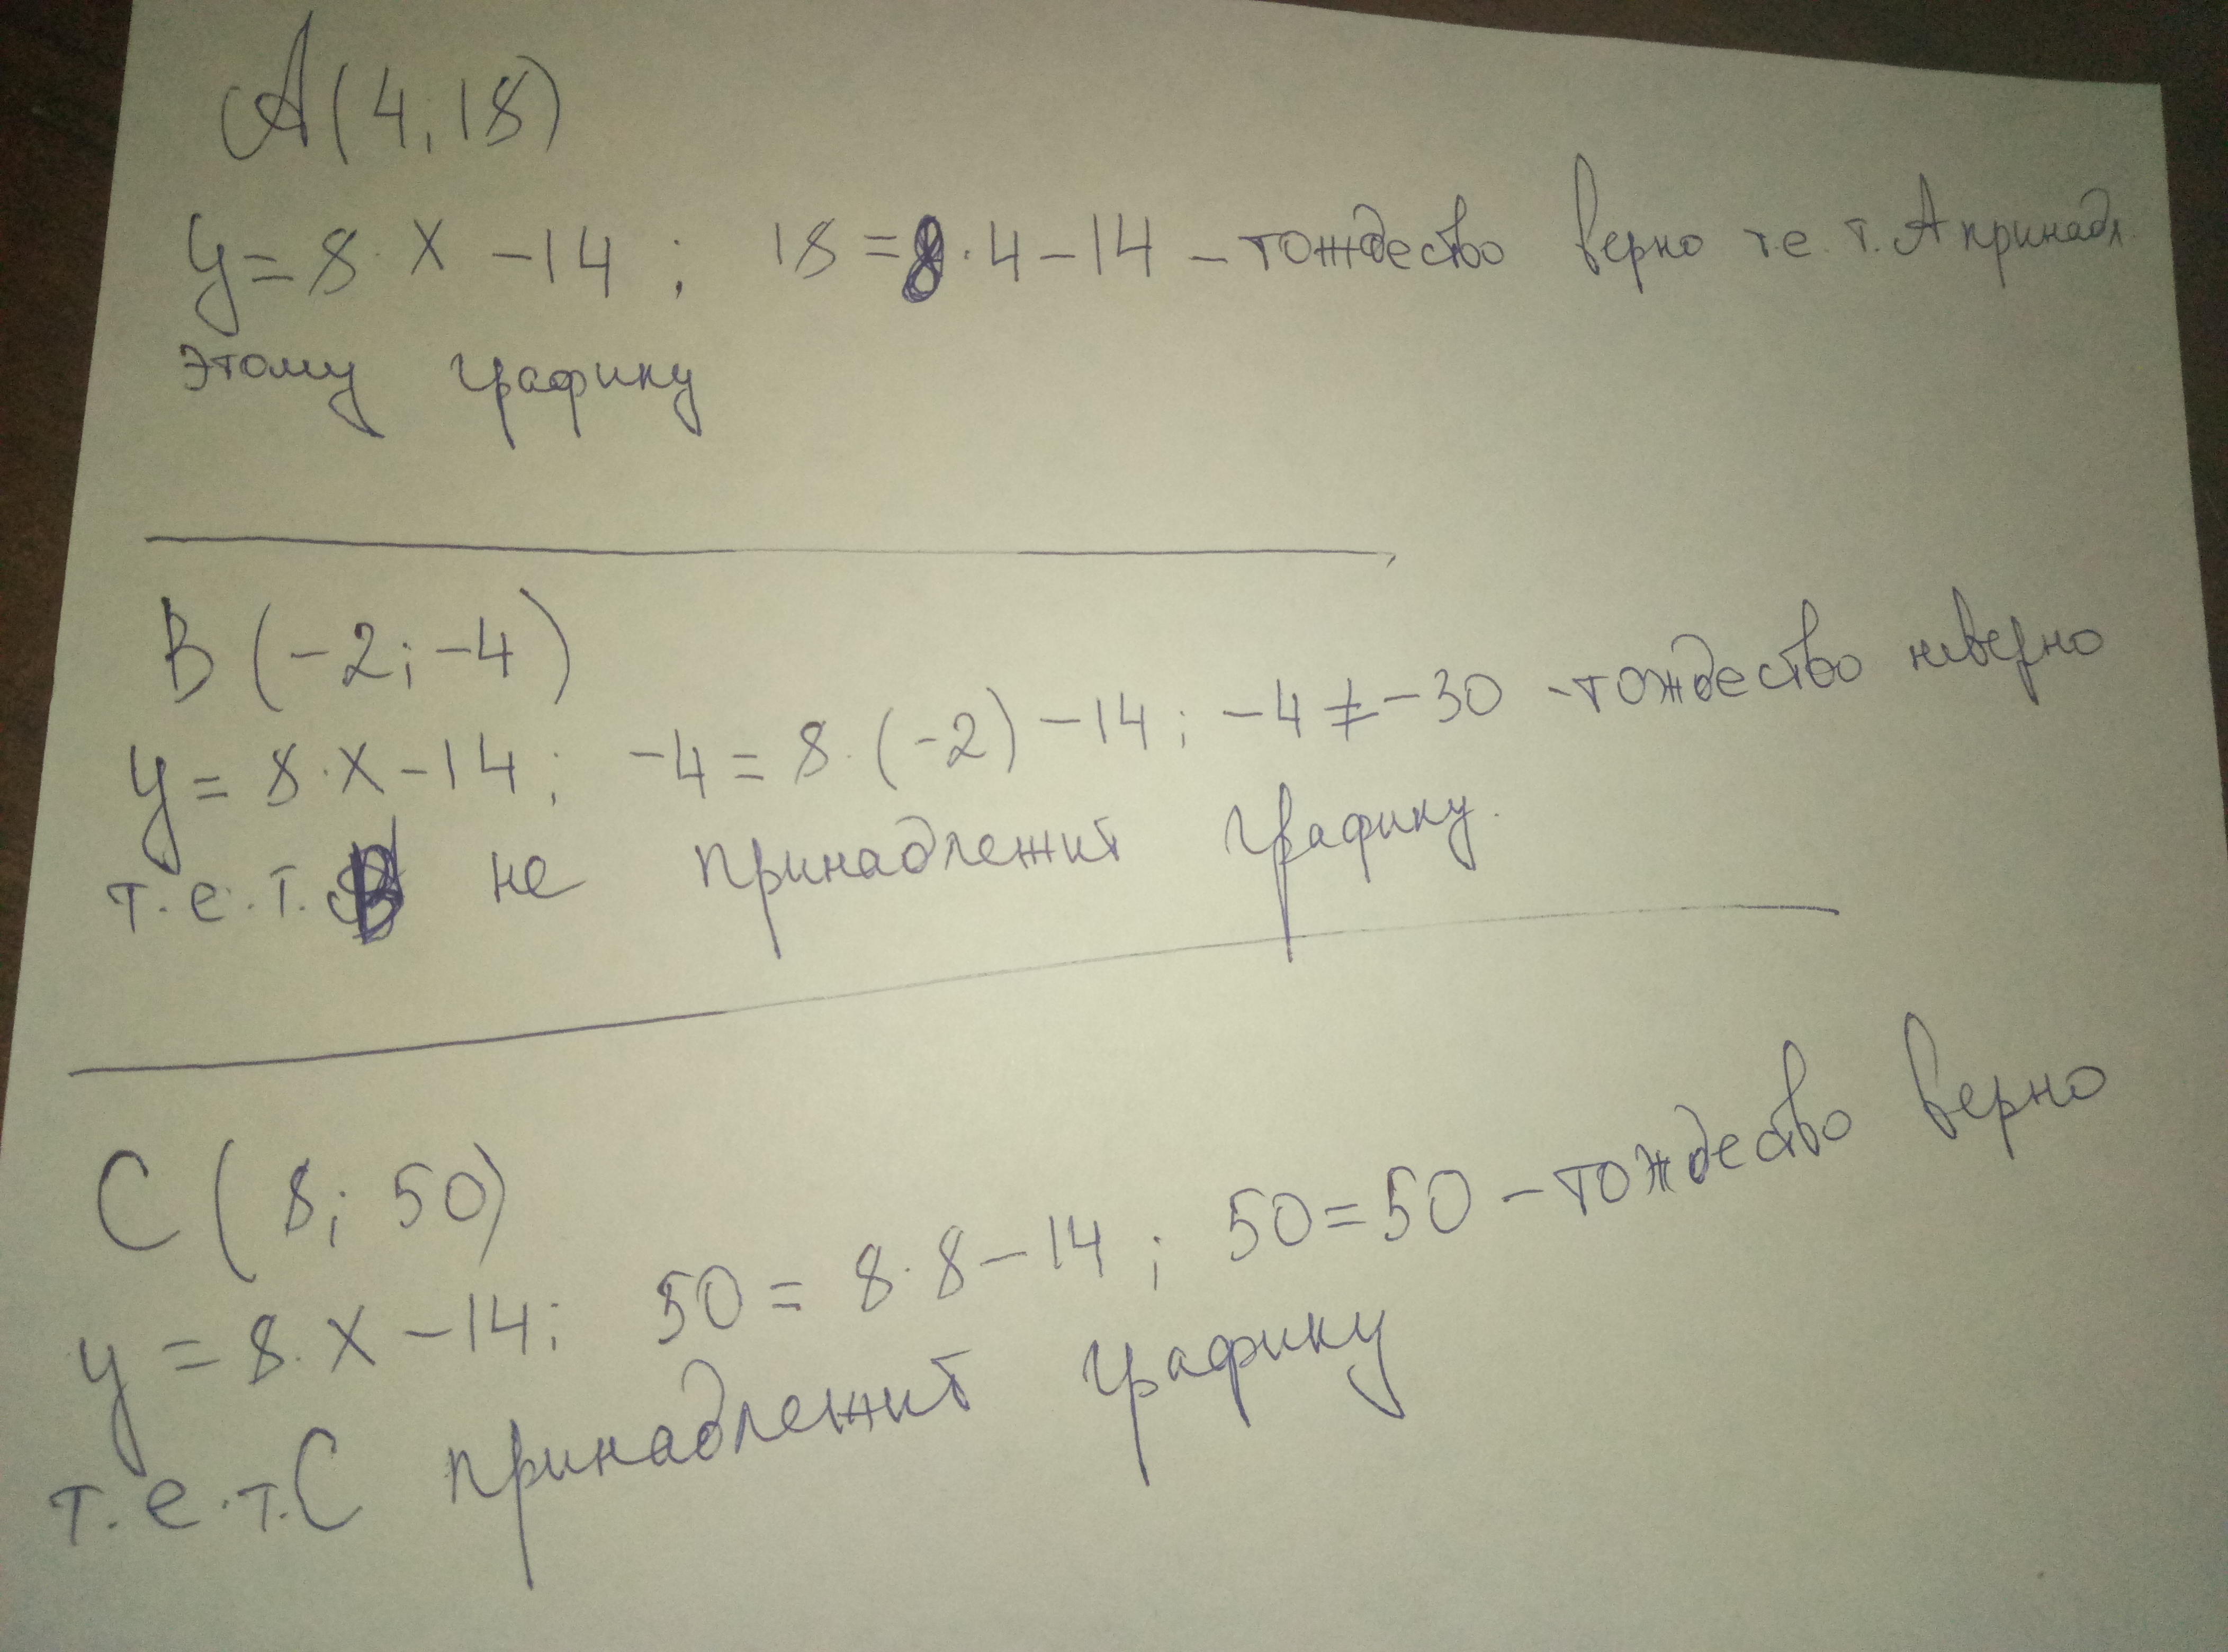 А(4;18)
y=8·x-14; 18=8·4-14 - тождество верно т.е. т. А принадл.
этому графику
В (-2;-4)
y=8·x-14; -4=8·(-2)-14; -4≠-30 -тождество неверно
т.е. т. В не принадлежит графику.
С (8; 50)
y=8·x-14; 50=8·8-14; 50=50 - тождество верно
т.е. т. С принадлежит графику